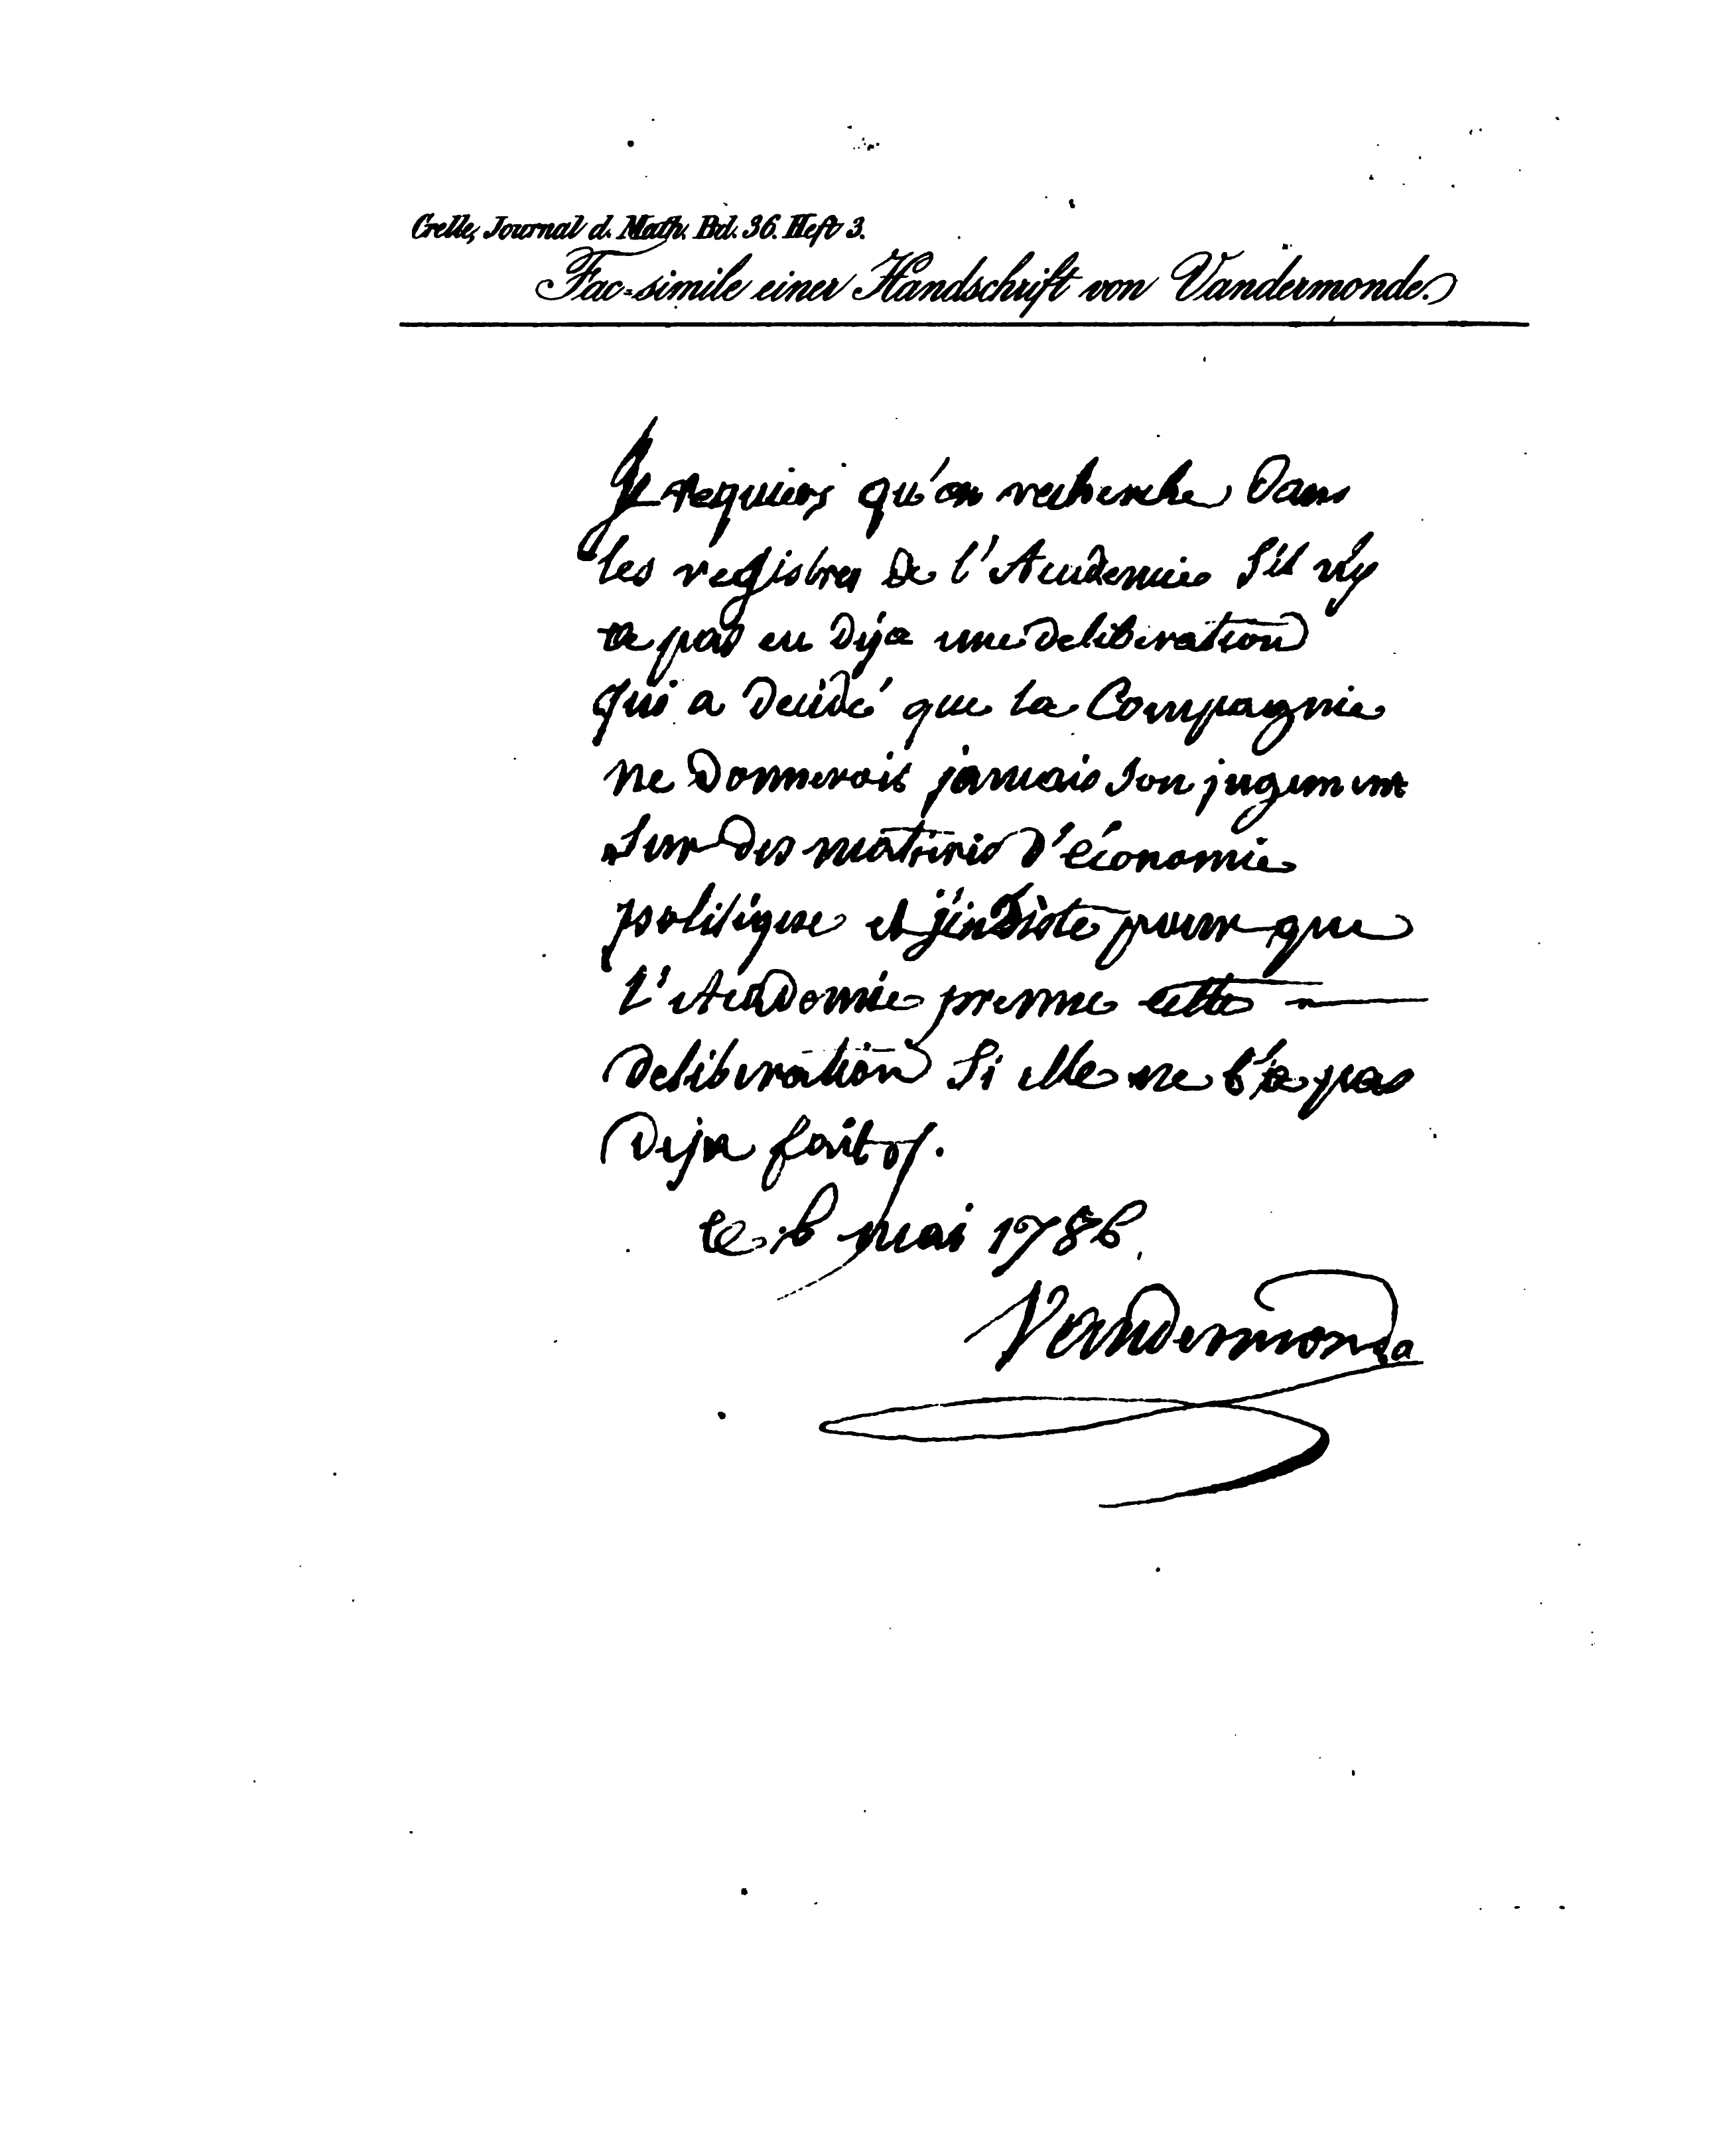 Crelle, Journal d. Math. Bd. 36. Heft 3.
Fac-simile einer Handschrift von Vandermonde.
Je requiers qu'on recherche dans
les registres de l'Academie s'il n'y
a pas eu deja une deliberation
qui a decidé que la Compagnie
ne donneroit jamais son jugement
sur des matieres d'économie
politique et j'insiste pour que
l'Academie prenne cette
deliberation si elle ne l'a pas
deja fait
le 6 mai 1786.
Vandermonde